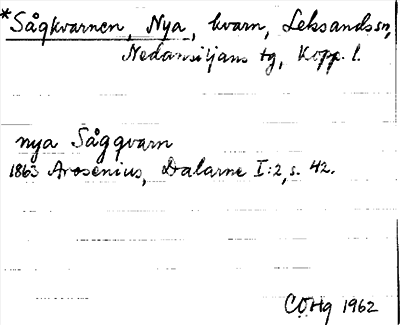 *Sågkvarnen, Nya, kvarn, Leksands sn,
Nedansiljans tg, Kopp. l.
nya Sågqvarn
1863 Arosenius, Dalarne I:2, s. 42.
COHg 1962